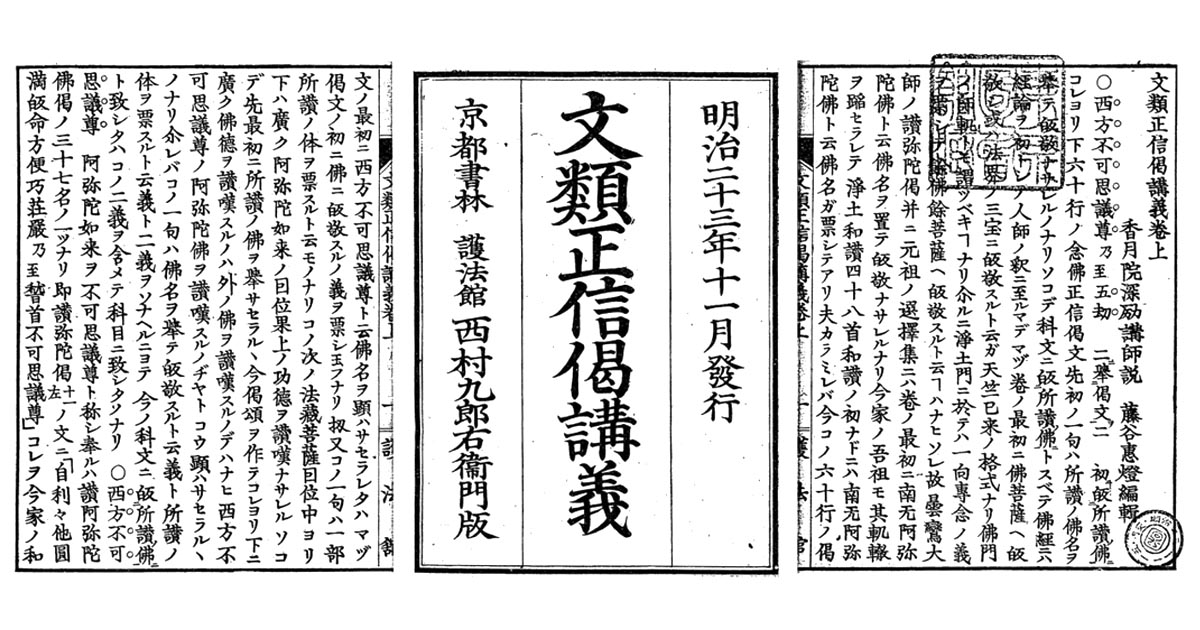 文類正信偈講義巻上
香月院深励講師説 藤谷惠燈編輯
○西方不可思議尊乃至五劫 二擧偈文二 初皈所讃佛
コレヨリ下六十行ノ念佛正信偈文先初ノ一句ハ所讃ノ佛名ヲ
擧テ皈敬ナサルレノナリソコデ科文ニ皈所讃佛トスベテ佛經ニ六
經論ヲ初トシノ人師ノ釈ニ至ルマデマヅ巻ノ最初ニ佛菩薩ヘ皈
敬シ或ハ法界ノ三宝ニ皈敬スルト云ガ天竺已来ノ格式ナリ佛門
ノ師軌トモ謂ツベキヿナリ尒ルニ淨土門ニ於テハ一向專念ノ義
佛餘菩薩ヘ皈敬スルト云ヿハナヒソレ故曇鸞大
師ノ讃弥陀偈并ニ元祖ノ選擇集ニハ巻ノ最初ニ南无阿弥
陀佛ト云佛名ヲ置テ皈敬ナサレルナリ今家ノ吾祖モ其軌轍
ヲ蹈セラレテ淨土和讃四十八首和讃ノ初ナドニハ南无阿弥
陀佛ト云佛名ガ票シテアリ夫カラミレバ今コノ六十行ノ偈
明治二十三年十一月發行
文類正信偈講義
京都書林 護法館 西村九郎右衞門版
文ノ最初ニ西方不可思議尊ト云佛名ヲ顯ハサセラレタハマヅ
偈文ノ初ニ佛ニ皈敬スルノ義ヲ票シ玉フナリ 扨又コノ一句ハ一部
所讃ノ体ヲ票スルト云モノナリコノ次ノ法蔵菩薩因位中ヨリ
下ハ廣ク阿弥陀如来ノ因位果上ノ功德ヲ讃嘆ナサレルソコ
デ先最初ニ所讃ノ佛ヲ擧サセラルヽ今偈頌ヲ作テコレヨリ下ニ
廣ク佛德ヲ讃嘆スルノハ外ノ佛ヲ讃嘆スルノデハナヒ西方不
可思議尊ノ阿弥陀佛ヲ讃嘆スルノヂヤトコウ顯ハサセラルヽ
ノナリ尒レバコノ一句ハ佛名ヲ擧テ皈敬スト云義ト所讃ノ
体ヲ票スルト云義ト二義ヲソナヘルニヨテ今ノ科文ニ皈所讃佛
ト致シタハコノ二義ヲ含メテ科目ニ致シタソナリ ○西方不可
思議尊 阿弥陀如来ヲ不可思議尊ト称シ奉ルハ讃阿弥陀
佛偈ノ三十七名ノ一ツナリ即讃弥陀偈十一左ノ文ニ「自利々他圓
満皈命方便巧荘嚴乃至稽首不可思議尊」コレヲ今家ノ和